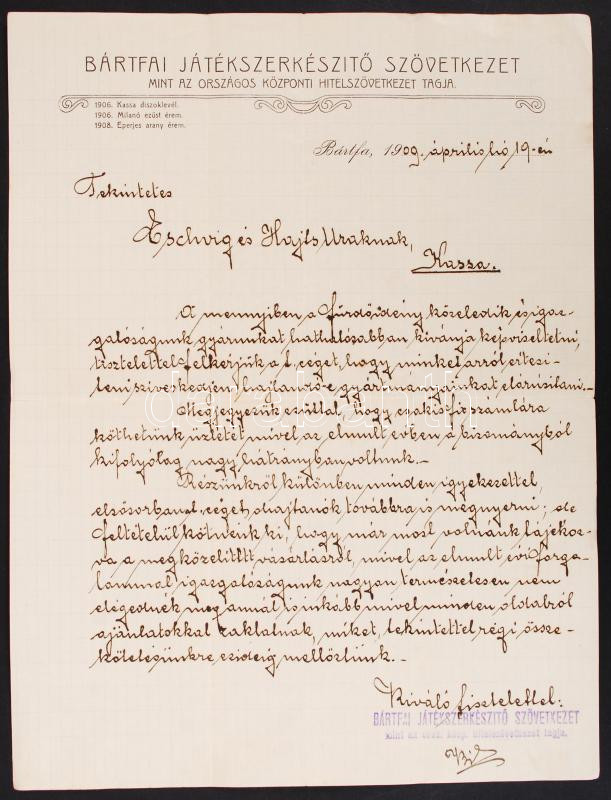 BÁRTFAI JÁTÉKSZERKÉSZITŐ SZÖVETKEZET
MINT AZ ORSZÁGOS KÖZPONTI HITELSZÖVETKEZET TAGJA.
1906. Kassa diszoklevél.
1906. Milanó ezüst érem.
1908. Eperjes arany érem.
Bártfa, 1909. április hó 19-én
Tekintetes
Eschwig és Hajts Uraknak,
Kassa.
A mennyiben a fürdőidény közeledik és igaz-
gatóságunk gyárunkat hathatósabban kivánja képviseltetni,
tisztelettel felkérjük a t. céget, hogy minket arról értesi-
teni sziveskedjen, hajlandó-e gyártmányainkat elárusitani.
Megjegyezzük ezúttal, hogy csakis fix számlára
köthetünk üzletet mivel az elmult évben a bizományból
kifolyólag nagy hátrányban voltunk.-
Részünkről különben minden igyekezettel,
elsősorban t. céget óhajtanók továbbra is megnyerni; de
feltételül kötnénk ki, hogy már most volnánk tájékoz-
va a megközelitett vásárlásról, mivel az elmult évi forga-
lommal igazgatóságunk nagyon természetesen nem
elégednék meg annál is inkább mivel minden oldalról
ajánlatokkal zaklatnak, miket, tekintettel régi össze-
köttetésünkre ezideig mellőztünk.-
Kiváló tisztelettel:
BÁRTFAI JÁTÉKSZERKÉSZITŐ SZÖVETKEZET
mint az orsz. közp. hitelszövetkezet tagja.
darabanth